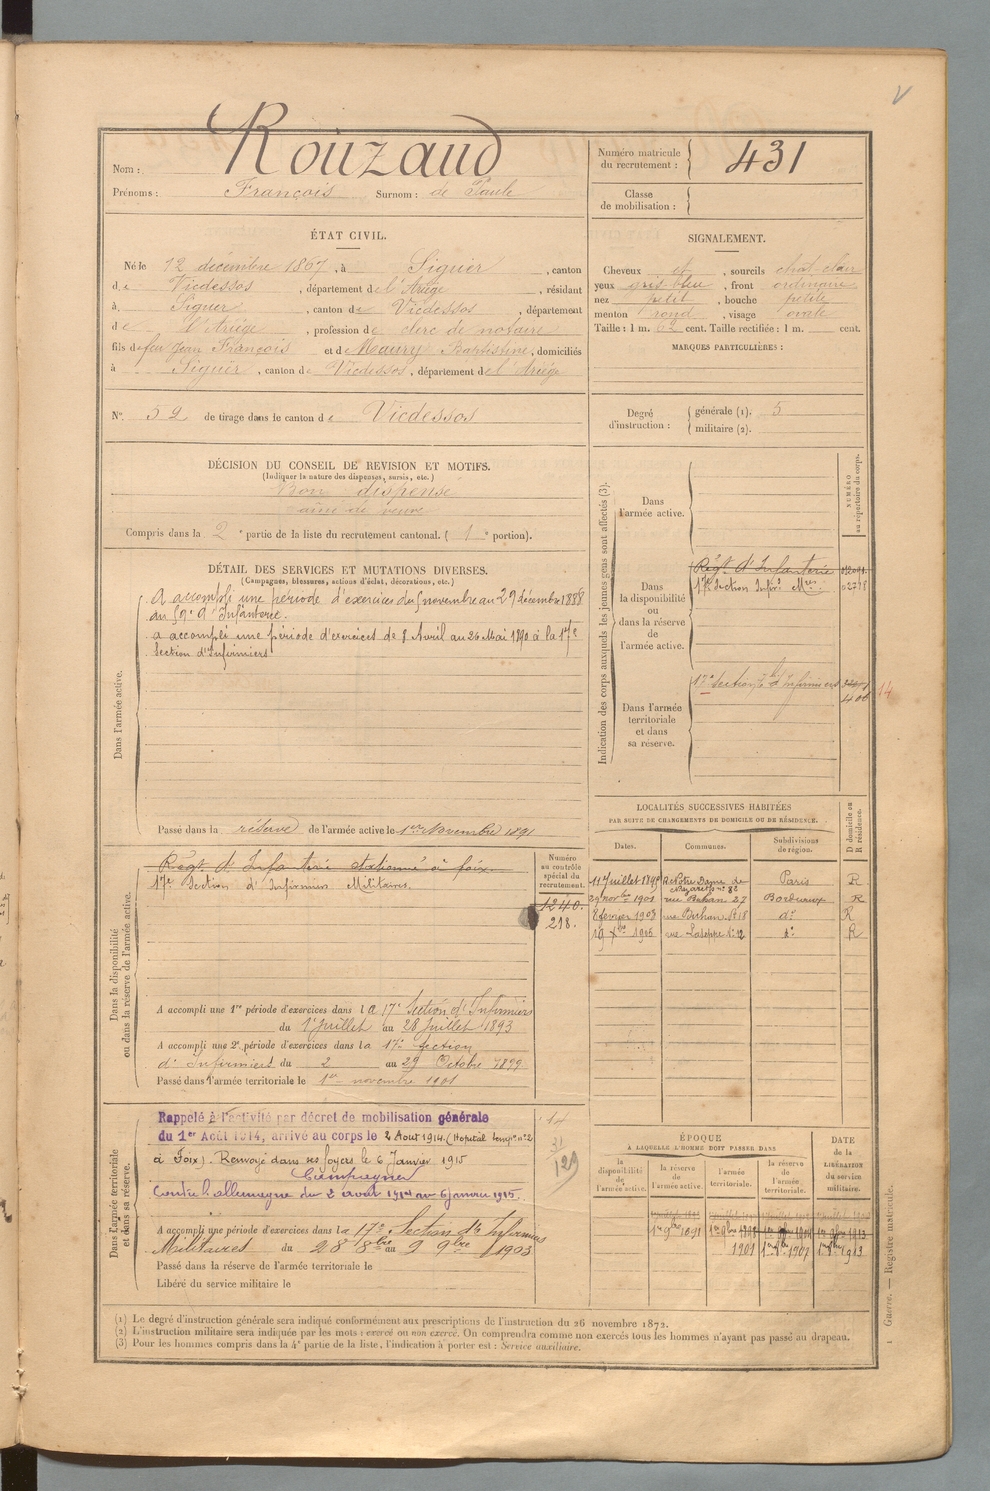 Nom : Rouzaud
Prénoms : François Surnom : de Paule
Numéro matricule du recrutement : 431
Classe de mobilisation :
ÉTAT CIVIL.
Né le 12 décembre 1867, à Siguer, canton
de Vicdessos, département de l'Ariége, résidant
à Siguer, canton de Vicdessos, département
de l'Ariége, profession de clerc de notaire
fils de feu Jean François et de Maury Baptistine, domiciliés
à Siguer, canton de Vicdessos, département de l'Ariége
SIGNALEMENT.
Cheveux et, sourcils chat-clair
yeux gris bleu, front ordinaire
nez petit, bouche petite
menton rond, visage ovale
Taille : 1 m. cent. Taille rectifiée : 1 m. cent.
MARQUES PARTICULIÈRES :
N° 52 de tirage dans le canton de Vicdessos
Degré d'instruction : générale (1). 5
militaire (2).
DÉCISION DU CONSEIL DE REVISION ET MOTIFS.
(Indiquer la nature des dispenses, sursis, etc.)
Bon dispensé
ainé de veuve
Compris dans la 2e partie de la liste du recrutement cantonal. (1e portion).
DÉTAIL DES SERVICES ET MUTATIONS DIVERSES.
(Campagnes, blessures, actions d'éclat, décorations, etc.)
Dans l'armée active.
A accompli une période d'exercices du 5 novembre au 29 décembre 1888
au 59e d'Infanterie.
a accompli une période d'exercices de 8 Avril au 26 Mai 1890 à la 17e
Section d'Infirmiers
Passé dans la réserve de l'armée active le 1er Novembre 1891
Indication des corps auxquels les jeunes gens sont affectés (3).
NUMÉRO au répertoire du corps.
Dans l'armée active.
Dans la disponibilité ou dans la réserve de l'armée active.
Régt d'Infanterie
17e Section Infirs Mres
Dans l'armée territoriale et dans sa réserve.
17e Section d'Infirmiers
406
14
LOCALITÉS SUCCESSIVES HABITÉES
PAR SUITE DE CHANGEMENTS DE DOMICILE OU DE RÉSIDENCE.
Dates. Communes. Subdivisions de région. D domicile ou R résidence.
Paris R
29 novbre 1901 rue Buhan 27 Bordeaux R
8 février 1903 rue Buhan n° 18 do R
19 Xbre 1905 do R
Dans la disponibilité ou dans la réserve de l'armée active.
Régt d'Infanterie stationné à foix.
17e Section d'Infirmiers Militaires.
Numéro au contrôle spécial du recrutement.
1240.
218.
A accompli une 1re période d'exercices dans la 17e Section d'Infirmiers
du 1er Juillet au 28 Juillet 1893
A accompli une 2e période d'exercices dans la 17e Section
d'Infirmiers du 2 au 29 Octobre 1899
Passé dans l'armée territoriale le 1er novembre 1901
Dans l'armée territoriale et dans sa réserve.
Rappelé à l'activité par décret de mobilisation générale
du 1er Août 1914, arrivé au corps le 2 Aout 1914. (Hopital tempre n° 2
à Foix). Renvoyé dans ses foyers le 6 Janvier 1915
Campagnes
Contre l'allemagne du 2 aout 1914 au 6 janvier 1915.
A accompli une période d'exercices dans la 17e Section d'Infirmiers
Militaires du 28 8bre au 9 9bre 1903
Passé dans la réserve de l'armée territoriale le
Libéré du service militaire le
14
31
129
ÉPOQUE
À LAQUELLE L'HOMME DOIT PASSER DANS
la disponibilité de l'armée active. la réserve de l'armée active. l'armée territoriale. la réserve de l'armée territoriale.
DATE de la LIBÉRATION du service militaire.
1er 9bre 1891
1901 1er 9bre 1907 1913
(1) Le degré d'instruction générale sera indiqué conformément aux prescriptions de l'instruction du 26 novembre 1872.
(2) L'instruction militaire sera indiquée par les mots : exercé ou non exercé. On comprendra comme non exercés tous les hommes n'ayant pas passé au drapeau.
(3) Pour les hommes compris dans la 4e partie de la liste, l'indication à porter est : Service auxiliaire.
1 Guerre. — Registre matricule.